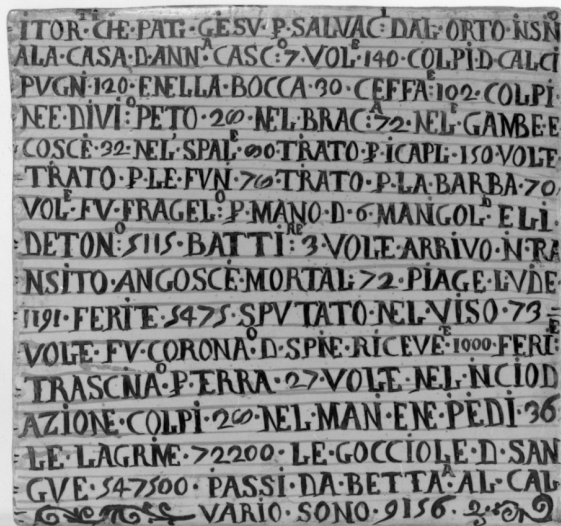 ITOR.TI CHE·PATI·GESV·P·SALVACI·DAL·ORTO·INSINO
ALA·CASA·D·ANNA·CASCO:7·VOLE·140·COLPI·D·CALCI
PVGNI·120·ENELLA·BOCCA·30·CEFFATE:102·COLPI·
NEE·DIVIO:PETO·20·NEL·BRACA:72·NEL·GAMBE·E
COSCE·32·NEL·SPALE·60·TRATO·P·ICAPL·150·VOLE
TRATO·P·LE·FVNI·76·TRATO·P·LA·BARBA·70
VOLE·FV·FRAGELO:P·MANO·D·6·MANGOLD·E·LI·
DETONO:5115·BATTIRE:3·VOLE·ARRIVO·IN·TRA
NSITO·ANGOSCE·MORTAL·72·PIAGE·LVIDE·
1191·FERITE·5475·SPVTATO·NEL·VISO·73
VOLE·FV·CORONAO·D·SPINE·RICEVETE·1000·FERITE
TRASCINAO·P·TERRA·27·VOLTE·NEL·INCIOD
AZIONE·COLPI·20·NEL·MANI·E NE·PEDI·36
LE·LAGRIME·72200·LE·GOCCIOLE·D·SAN
GVE·547500·PASSI·DA·BETTAA·AL·CAL
VARIO·SONO·9156·2·